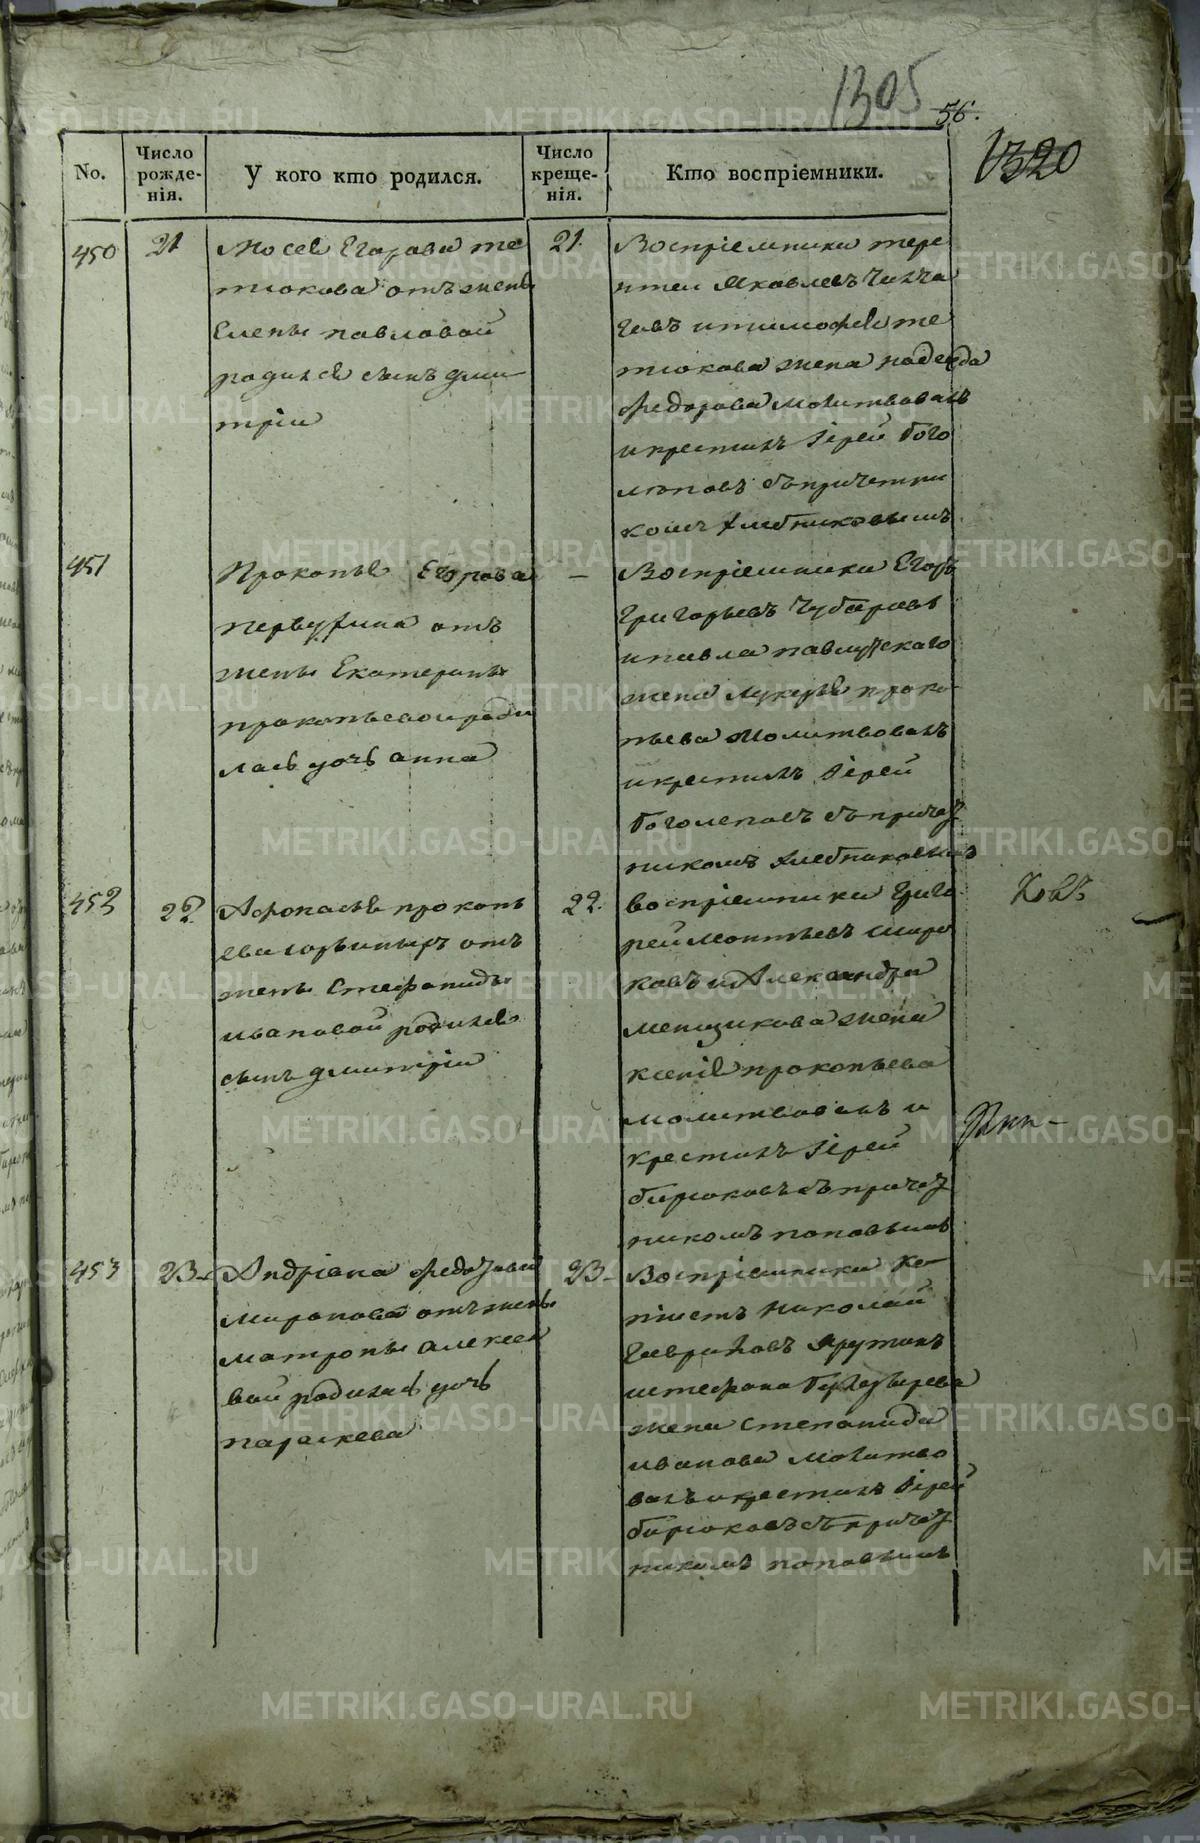 1305
56.
1320
No.
Число рожде-нія.
У кого кто родился.
Число креще-нія.
Кто воспріемники.
450
21
Мосея Егорова те
тюкова отъ жены
Елены павловой
родился сынъ дми
трій
21.
Воспріемники тере
нтей Яковлевъ
и тимофея те
тюкова жена надежда
федорова молитвовалъ
и крестилъ Іерей бого
лѣповъ съ причетни
комъ хлебниковымъ
451
Прокопья Егорова
первухина отъ
жены Екатерины
прокопьевой роди
лась дочь анна
–
Воспріемники Егоръ
Григорьевъ Чубаровъ
и павла павлуцкаго
жена лукерья проко
пьева молитвовалъ
и крестилъ Іерей
боголеповъ съ причет
никомъ хлебниковымъ
452
22
Афонасья прокопь
ева отъ
жены Стефаниды
ивановой родился
сынъ дмитрій
22.
воспріемники Григо
рей леонтьевъ широ
ковъ и Александра
менщикова жена
ксенія прокопьева
молитвовалъ и
крестилъ Іерей
бирюковъ съ причет
никомъ поповымъ
453
23-
Андріяна федотова
миронова отъ жены
матроны алексее
вой родилась дочь
параскева
23-
Воспріемники Ко
піистъ николай
Гавриловъ
и стефана
жена степанида
иванова молитво
валъ и крестилъ Іерей
бирюковъ съ причет
никомъ поповымъ
METRIKI.GASO-URAL.RU